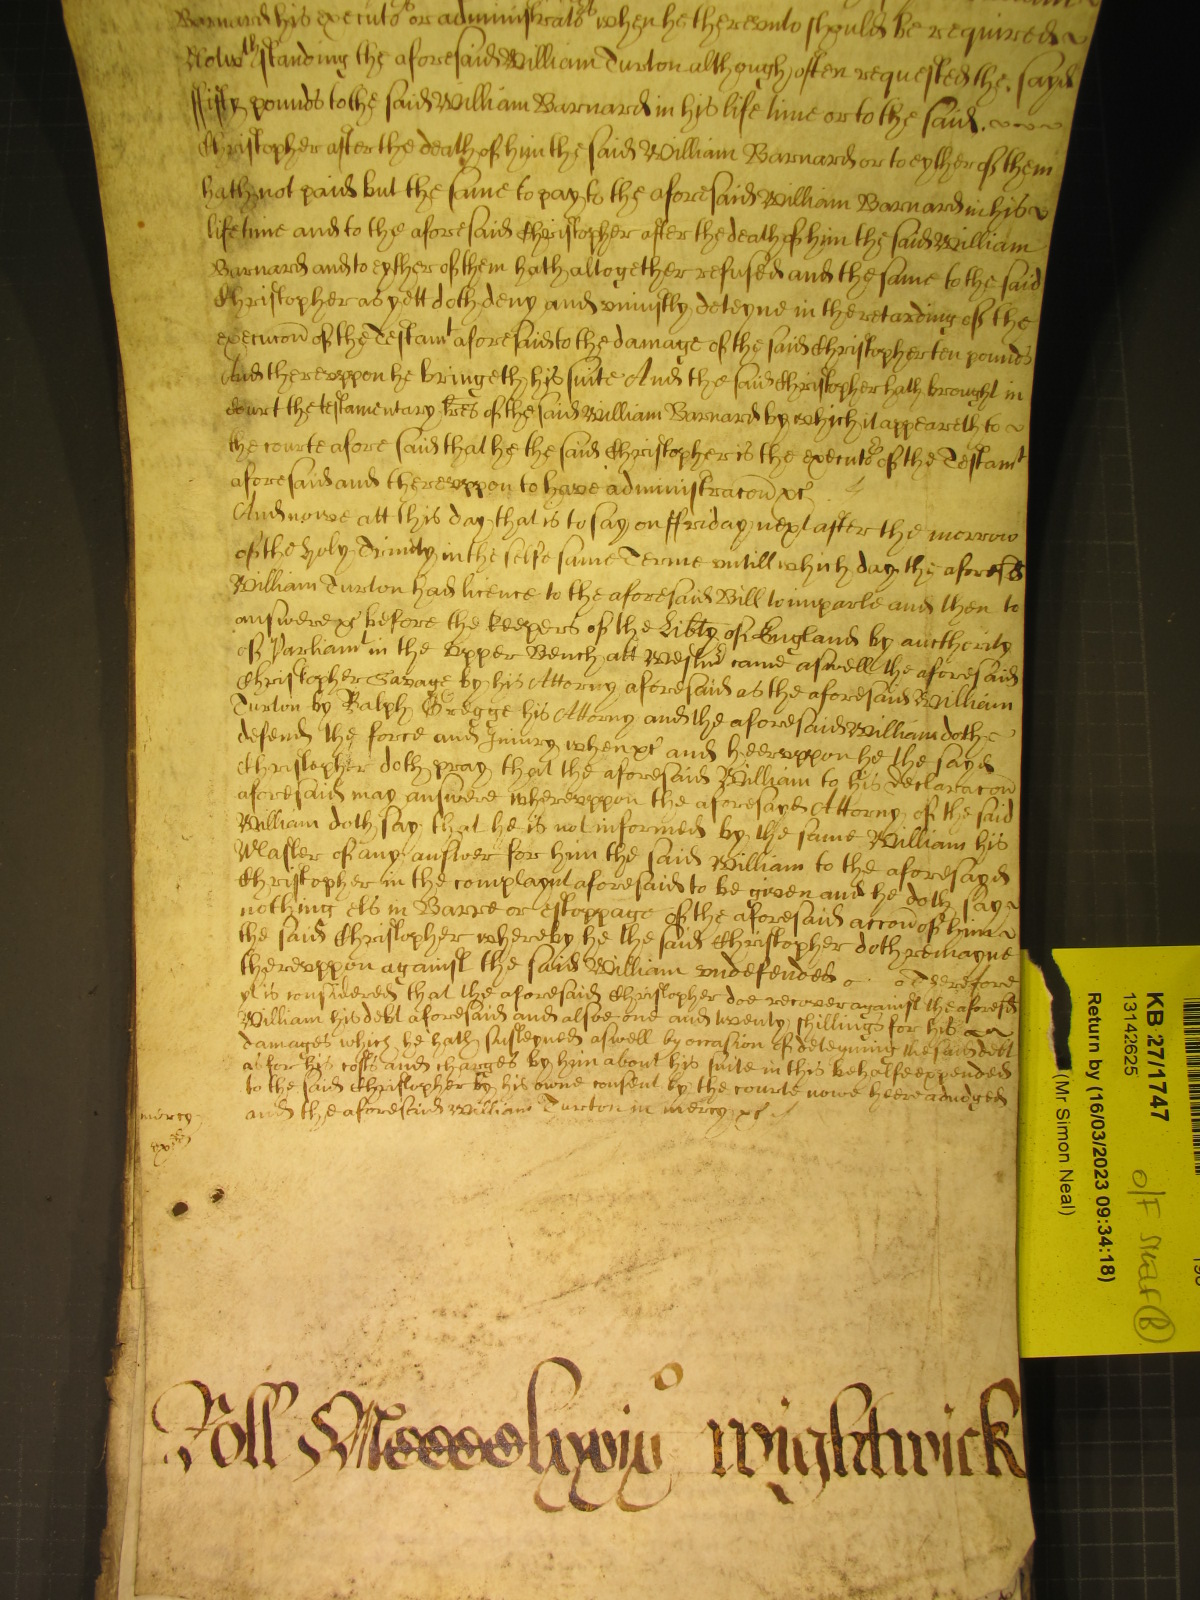 Barnard his executors or administrators when he therevnto should be required
Notwthstanding the aforesaid William Turton although often requested the sayd
ffifty pounds to the said William Barnard in his life time or to the said
Christopher after the death of him the said William Barnard or to eyther of them
hath not paid but the same to pay to the aforesaid William Barnard in his
life time and to the aforesaid Christopher after the death of him the said William
Barnard and to eyther of them hath altogether refused and the same to the said
Christopher as yett doth deny and vniustly deteyne in the retarding of the
execucon of the Testamt aforesaid to the damage of the said Christopher ten pounds
And therevppon he bringeth his suite And the said Christopher hath brought in
Court the testamentary lres of the said William Barnard by which it appeareth to
the courte afore said that he the said Christopher is the executor of the Testamt
aforesaid and therevppon to have administracon &c
And nowe att this day that is to say on ffriday next after the morrow
of the holy Trinity in the selfe same Terme vntill which day the aforesd
William Turton had licence to the aforesaid Bill to imparle and then to
answere &c before the keepers of the Libty of England by aucthority
of Parliamt in the vpper Bench att Westmr came aswell the aforesaid
Christopher Savage by his Attorny aforesaid as the aforesaid William
Turton by Ralph Gregge his Attorny and the aforesaid William doth
defend the force and Injury when &c and heervppon he the sayd
Christopher doth pray that the aforesaid William to his declaracon
aforesaid may answere wherevppon the aforesayd Attorny of the said
William doth say that he is not informed by the same William his
Master of any answer for him the said William to the aforesayd
Christopher in the complaynt aforesaid to be given and he doth say
nothing els in Barre or estoppage of the aforesaid accon of him
the said Christopher whereby he the said Christopher doth remayne
therevppon against the said William vndefended Therefore
yt is considered that the aforesaid Christopher doe recover against the aforesd
William his debt aforesaid and alsoe one and twenty shillings for his
damages which he hath susteyned aswell by occasion of deteyning the said debt
as for his costs and charges by him about his suite in this behalfe expended
to the said Christopher by his owne consent by the courte nowe heere adiudged
mercy and the aforesaid William Turton in mercy &c
Roll Mcccclxxiijo Wightwick
KB 27/1747
13142625
Return by (16/03/2023 09:34:18)
(Mr Simon Neal)
O/F